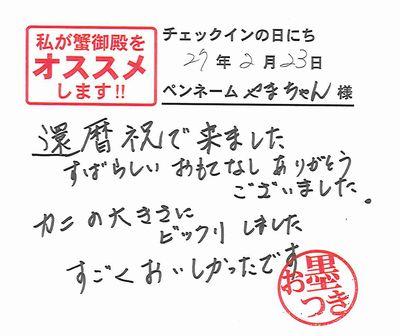 私が蟹御殿を
オススメ
します!!
チェックインの日にち
27年2月23日
ペンネーム やまちゃん 様
還暦祝で来ました
すばらしい おもてなし ありがとう
ございました。
カニの大きさに
ビックリしました
すごくおいしかったです
お墨つき